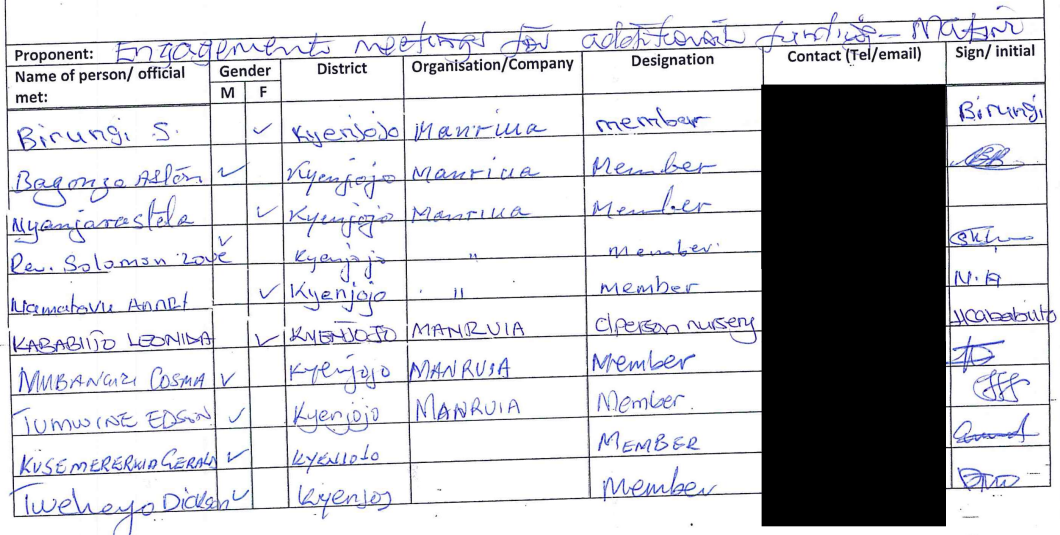 Proponent: Engagement meetings for additional funding - Matiri
Name of person/ official met: Gender District Organisation/Company Designation Contact (Tel/email) Sign/ initial
M F
Birungi S. ✓ Kyenjojo Manriua member Birungi
Bagonza ✓ Kyenjojo Manriua Member
Nyanjarastela ✓ Kyenjojo Manriua Member
Rev. Solomon ✓ Kyenjojo " member.
Namatovu Annet ✓ Kyenjojo " member N.A
KABABIITO LEONIDA ✓ KYENJOJO MANRUIA C/person nursery Kababiito
MUBANGIZI COSMA ✓ Kyenjojo MANRUIA Member
TUMWINE EDSON ✓ Kyenjojo MANRUIA Member.
KUSEMERERWA GERALD ✓ KYENJOJO MEMBER
Tweheyo Dickson ✓ Kyenjoj Member